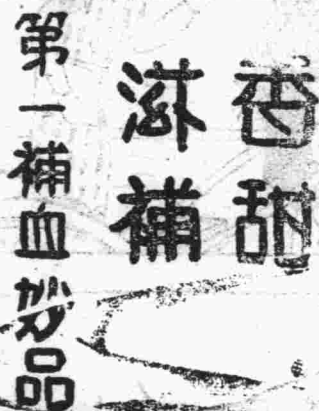 香甜
滋補
第一補血妙品